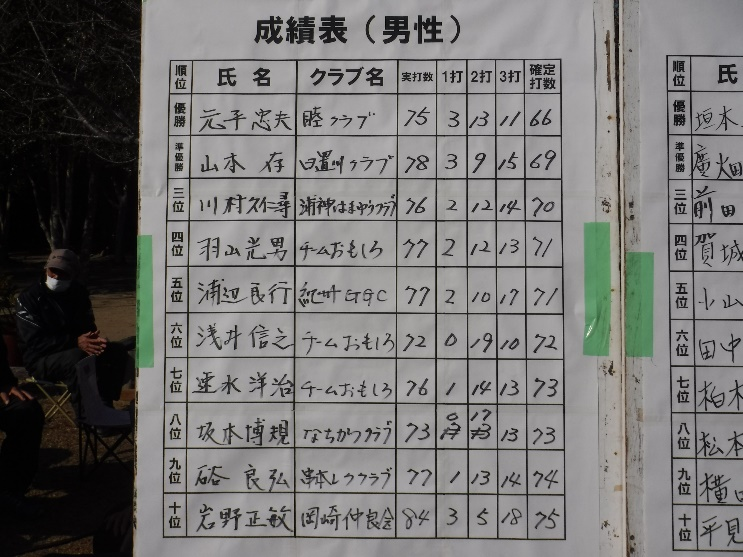 成績表（男性）
順位 氏名 クラブ名 実打数 1打 2打 3打 確定打数
優勝 元平忠夫 睦クラブ 75 3 13 11 66
準優勝 山本 存 日置川クラブ 78 3 9 15 69
三位 川村久仁尋 浦神はまゆうクラブ 76 2 12 14 70
四位 羽山光男 チームおもしろ 77 2 12 13 71
五位 浦辺良行 紀州GGC 77 2 10 17 71
六位 浅井信之 チームおもしろ 72 0 19 10 72
七位 速水洋治 チームおもしろ 76 1 14 13 73
八位 坂本博規 なちかつクラブ 73 0 17 13 73
九位 良弘 串本レククラブ 77 1 13 14 74
十位 岩野正敏 岡崎仲良会 84 3 5 18 75
順位 氏
優勝 垣本
準優勝 廣畑
三位 前田
四位 賀城
五位 小山
六位 田中
七位 柏木
八位 松本
九位 横田
十位 平見